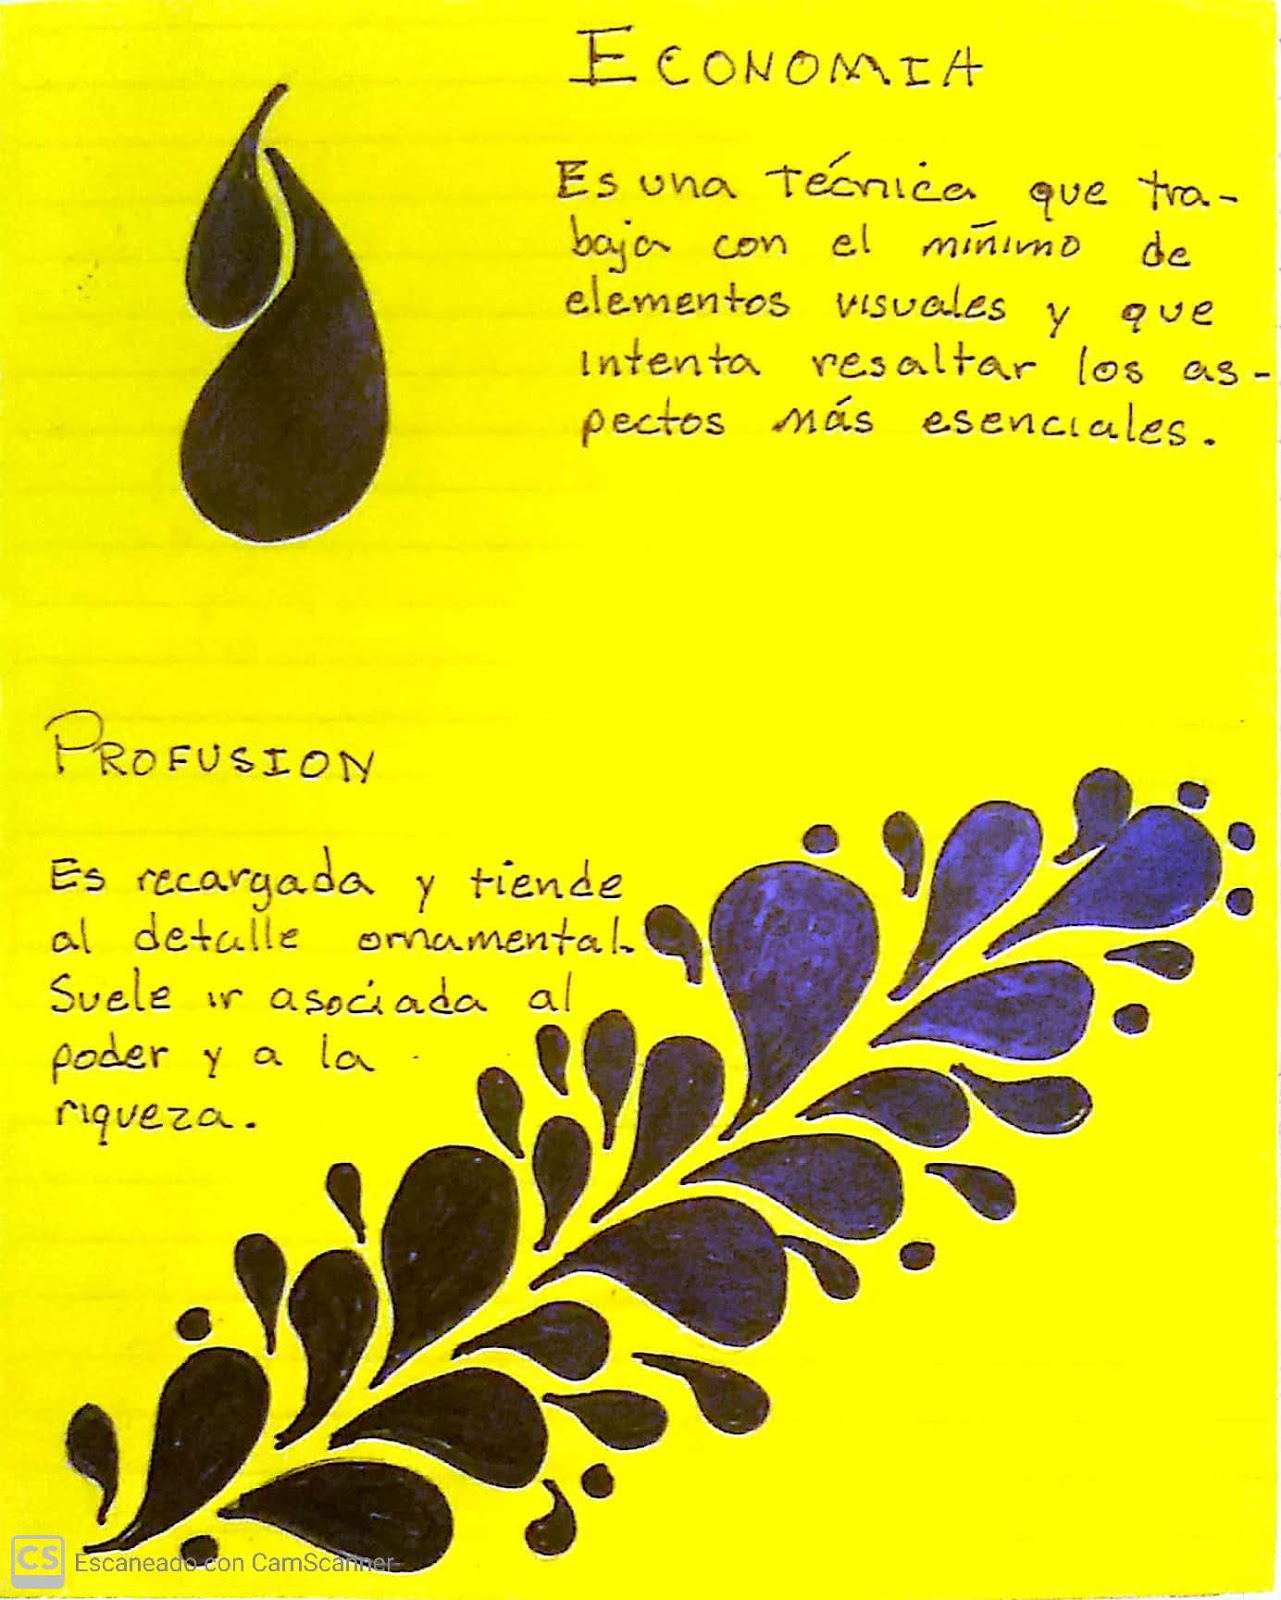 ECONOMIA
Es una técnica que tra-
baja con el mínimo de
elementos visuales y que
intenta resaltar los as-
pectos más esenciales.
PROFUSION
Es recargada y tiende
al detalle ornamental.
Suele ir asociada al
poder y a la
riqueza.
CS Escaneado con CamScanner